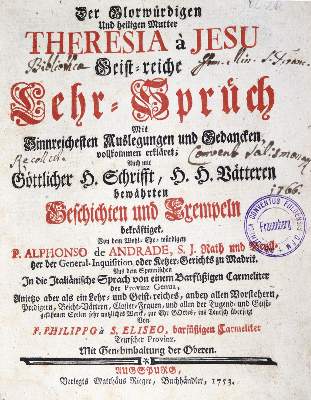 Der Glorwürdigen
Und heiligen Mutter
THERESIA à JESU
Bibliotheca
Geist-reiche
Lehr-Sprüch
Mit
Sinnreichesten Auslegungen und Gedancken
vollkommen erkläret;
Recollect.
Auch mit
Conventûs
Göttlicher H. Schrifft, H. H. Vätteren
bewährten
1766.
Geschichten und Exempeln
bekräftiget.
Von dem Wohl-Ehr-würdigen
P. ALPHONSO de ANDRADE, S. J. Rath und
her der General-Inquisition oder Ketzer-Gerichts zu Madrit.
Aus dem Spannischen
In die Italiänische Sprach von einem Barfüßigen Carmeliter
der Provinz Genua,
Anietzo aber als ein Lehr- und Geist-reiches, anbey allen Vorstehern,
Predigern, Beicht-Vättern, Closter-Frauen, und allen der Tugend- und Geist-
geflissenen Seelen sehr nutzliches Werk, zur Ehr GOttes, ins Teutsch übersetzt
Von
P. PHILIPPO à S. ELISEO, barfüßigen Carmeliter
Teutscher Provinz.
Mit Genehmhaltung der Oberen.
AUGSPURG,
Verlegts Matthäus Rieger, Buchhändler, 1753.